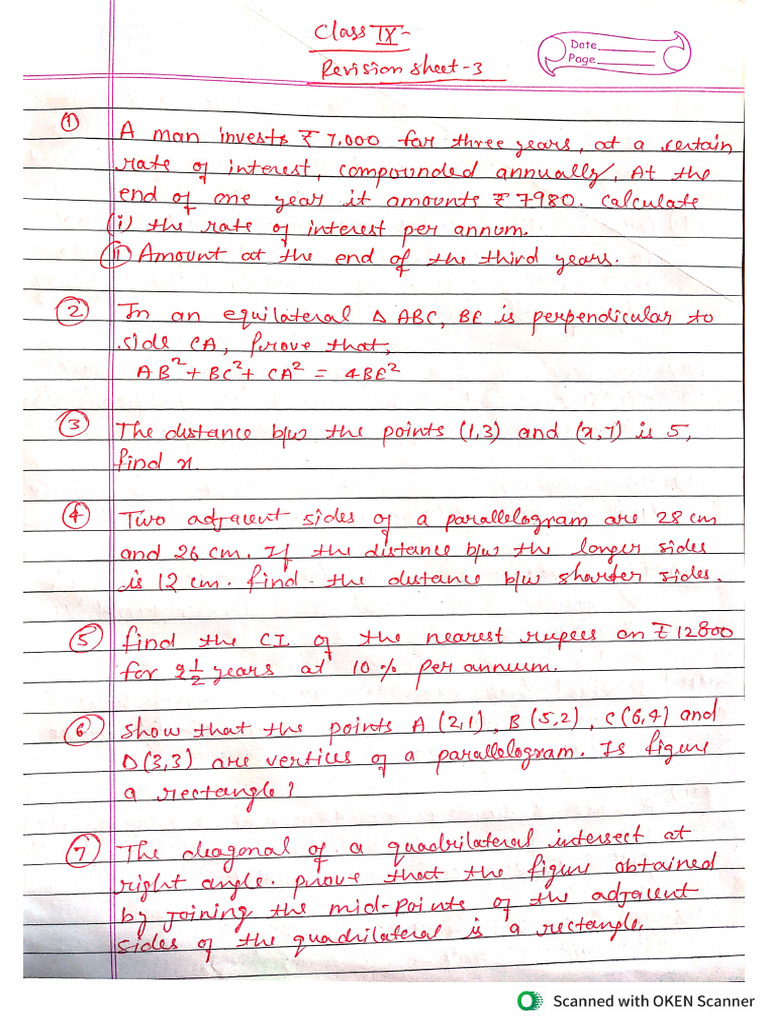 Class IX-
Revision sheet-3
Date
Page
① A man invests ₹ 7,000 for three years, at a certain
rate of interest, compounded annually, At the
end of one year it amounts ₹ 7980. Calculate
(i) the rate of interest per annum.
(ii) Amount at the end of the third years.
② In an equilateral Δ ABC, BE is perpendicular to
side CA, prove that,
AB² + BC² + CA² = 4BE²
③ The distance b/w the points (1,3) and (x,7) is 5,
find x.
④ Two adjacent sides of a parallelogram are 28 cm
and 26 cm. If the distance b/w the longer sides
is 12 cm. find the distance b/w sharter sides.
⑤ find the CI of the nearest rupees on ₹ 12800
for 2½ years at 10% per annum.
⑥ Show that the points A (2,1), B (5,2), C (6,4) and
D (3,3) are vertices of a parallelogram. Is figure
a rectangle?
⑦ The diagonal of a quadrilateral intersect at
right angle. prove that the figure obtained
by joining the mid-points of the adjacent
sides of the quadrilateral is a rectangle.
Scanned with OKEN Scanner